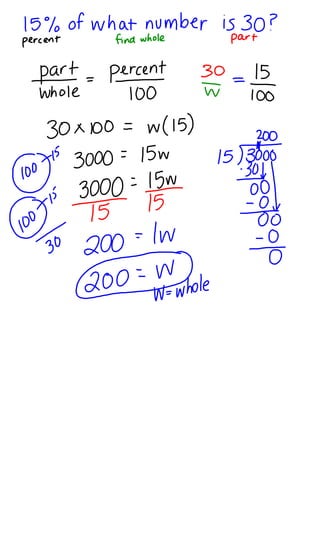 15% of what number is 30?
percent find whole part
part/whole = percent/100 30/w = 15/100
30 x 100 = w(15)
3000 = 15w
3000/15 = 15w/15
200 = 1w
200 = w
w = whole
100 15
100 15
30
200
15)3000
-30
00
-0
00
-0
0